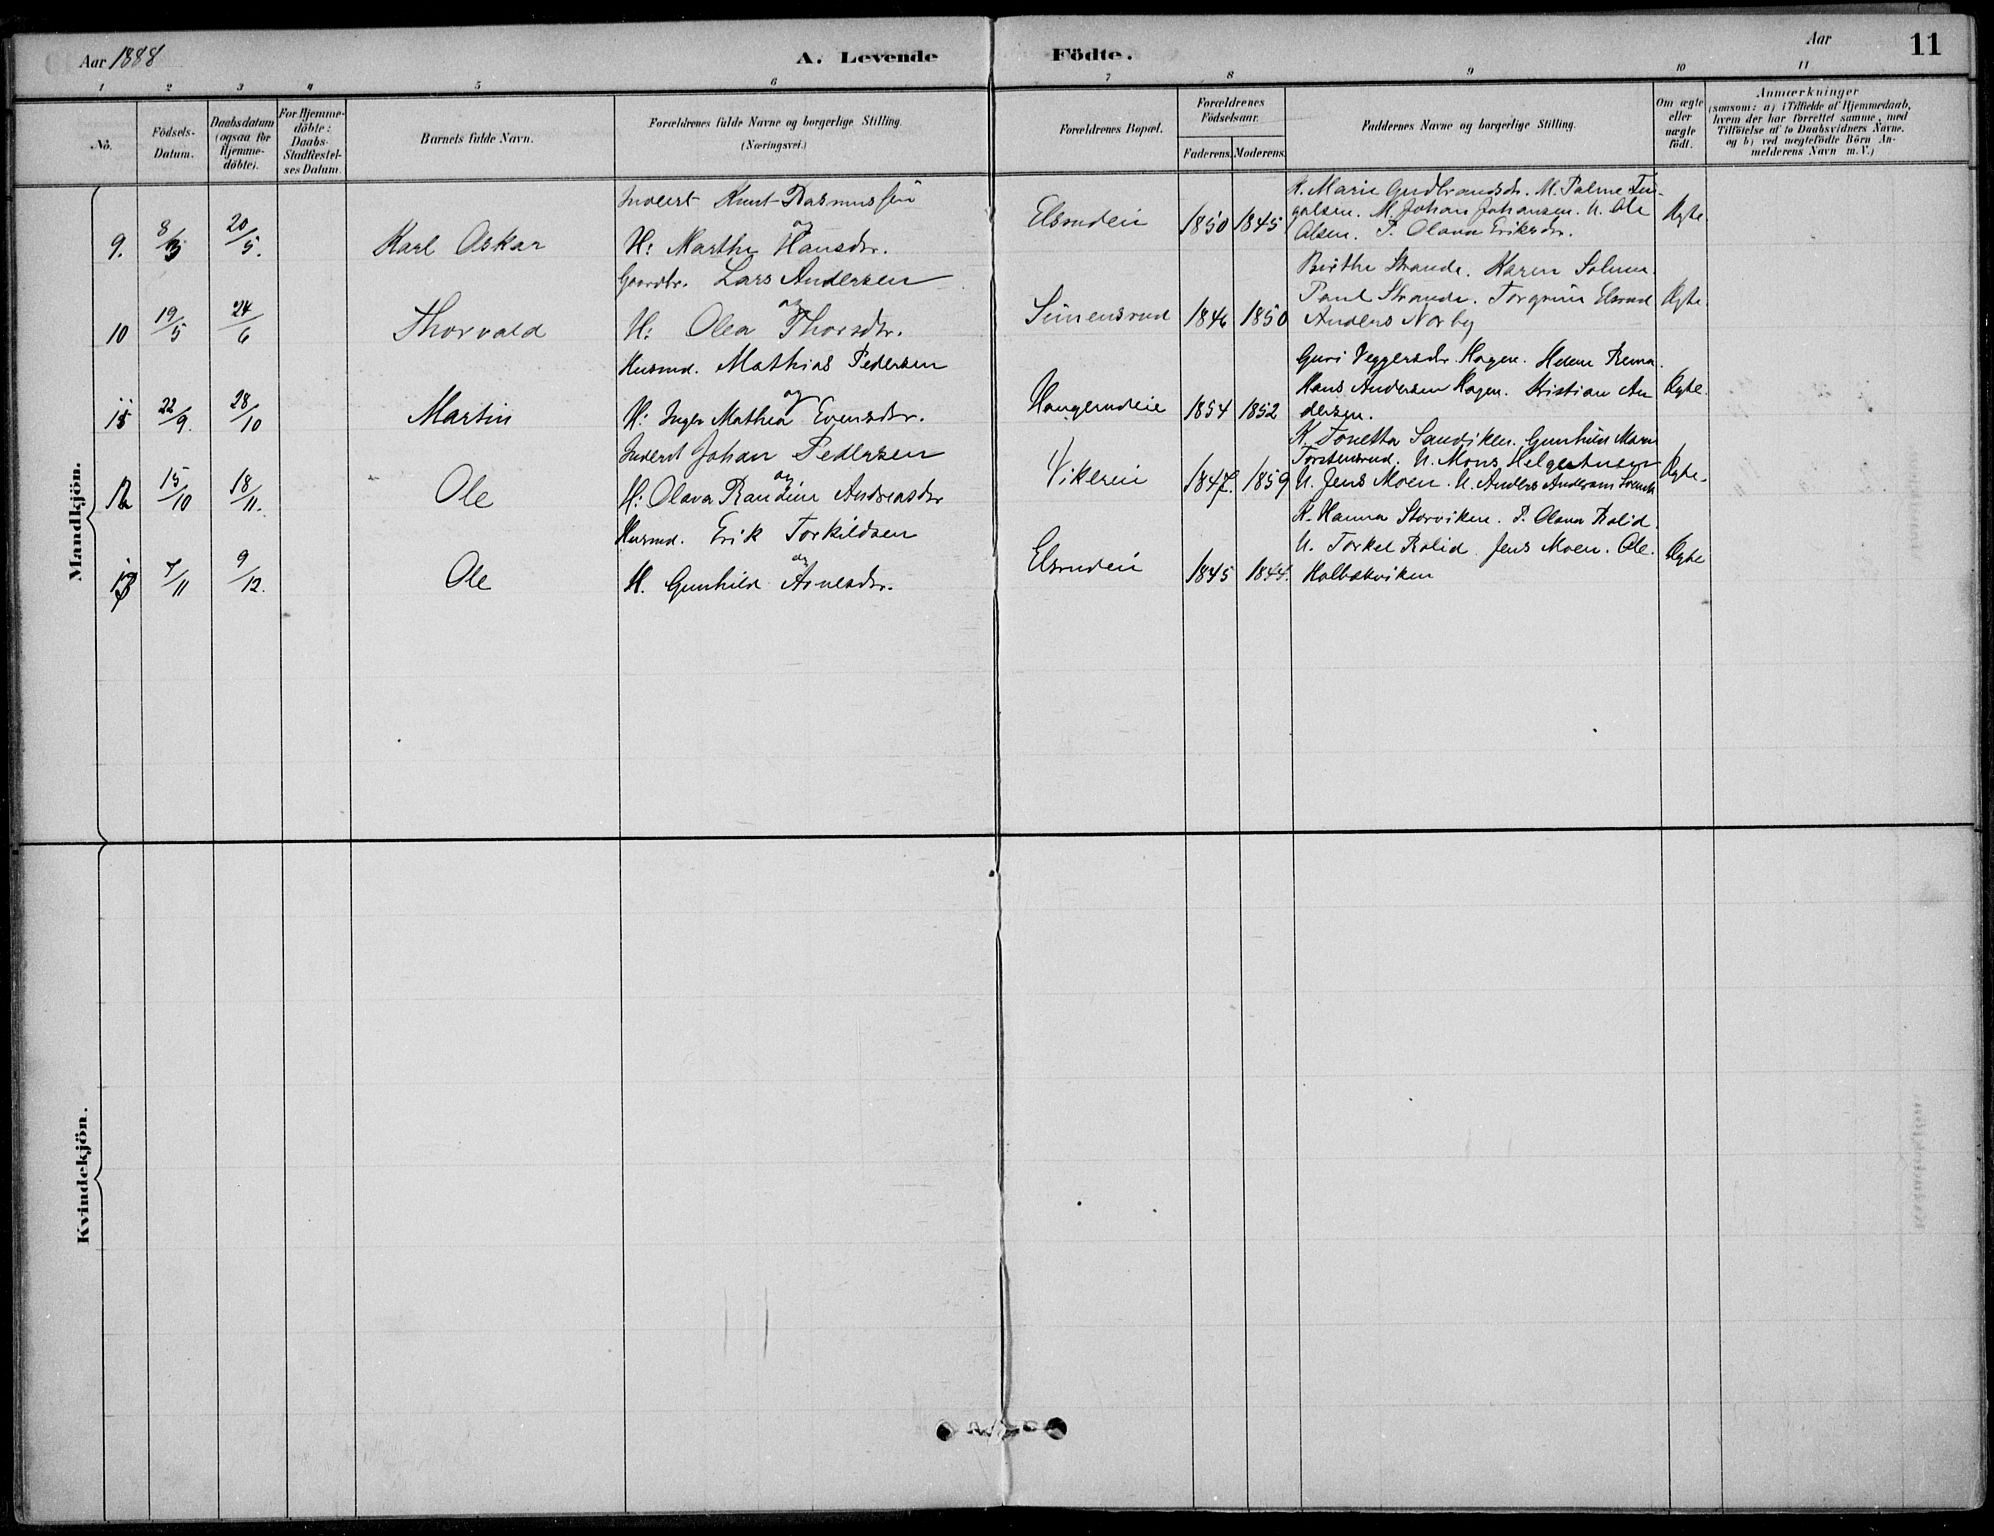 Aar 1888
A. Levende Födte.
Aar
11
1 2 3 4 5 6 7 8 9 10 11
No.
Födsels-Datum.
Daabsdatum (ogsaa for Hjemme-döbte).
For Hjemme-döbte: Daabs-Stadfæstel-ses Datum.
Barnets fulde Navn.
Forældrenes fulde Navne og borgerlige Stilling.
(Næringsvei.)
Forældrenes Bopæl.
Forældrenes Födselsaar.
Faderens. Moderens.
Faddernes Navne og borgerlige Stilling.
Om ægte eller uægte födt.
Anmærkninger
(saasom: a) i Tilfælde af Hjemmedaab,
hvem der har forrettet samme, med
Tilföielse af to Daabsvidners Navne.
og b) ved uægtefödte Börn An-
melderens Navn m.V.)
Mandkjön.
9. 8/3 20/5. Karl Oskar
Inderst Knut Rasmussen
og
H: Marthe Hansdr.
Elsrudeie 1850 1845
K. Marie Gudbrandsdr. M. Palme
M. Johan Johansen. U. Ole
Olsen. P. Olava Eriksdr.
Ægte.
10 19/5 24/6 Thorvald
Gaardbr. Lars Andersen
og
H: Olea Thorsdr.
Simensrud 1846 1850
Berthe Strande. Karen
Paul Strande. Torgrim Elsrud
Anders Norby
Ægte.
11 22/9. 28/10 Martin
Husmd. Mathias Pedersen
og
H: Inger Mathea Evensdr.
Haugerudeie 1854 1852
Guri Veggersdr. Hagen. Helene
Hans Andersen Hagen. Kristian An
dersen.
Ægte.
12 15/10 18/11. Ole
Inderst Johan Pedersen
og
H: Olava Randine Andreasdr
Vikereie 1847. 1859
K. Tonetta Sandviken. Gunhild Marie
Torstensrud. U. Mons Helgestuen
U. Jens Moen. U. Anders Andersens
Ægte.
13 7/11 9/12. Ole
Husmd. Erik Torkildsen
og
H. Gunhild Arnesdr.
Elsrudeie 1845 1844.
K. Hanna Storviken. P. Olava Rolid.
U. Torkel Rolid. Jens Moen. Ole.
Holbækviken
Ægte
Kvindekjön.